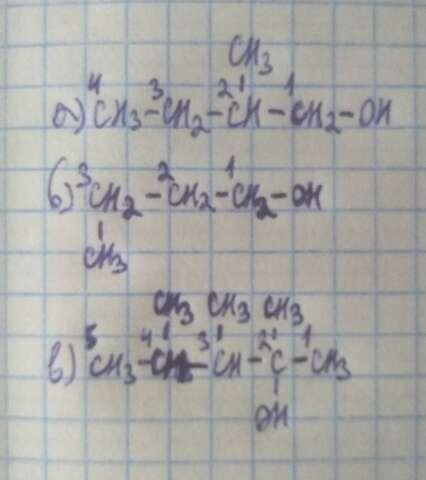 CH3
4 3 2 1
а) CH3-CH2-CH-CH2-OH
3 2 1
б) CH2-CH2-CH2-OH
CH3
CH3 CH3 CH3
5 4 3 2 1
в) CH3-CH-CH-C-CH3
OH